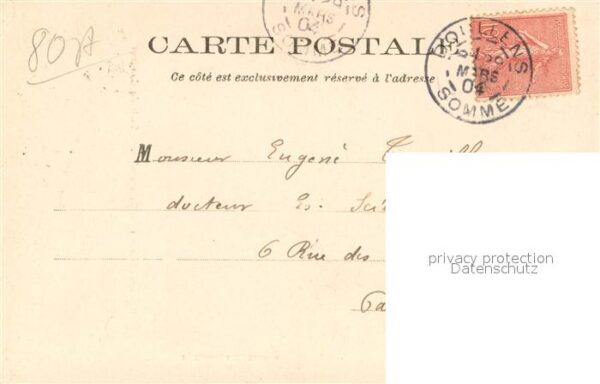 80A
MARS
04
CARTE POSTALE
Ce côté est exclusivement réservé à l'adresse
DOULLENS
MARS
04
SOMME
Monsieur Eugène
docteur Es-
6 Rue des
privacy protection
Datenschutz